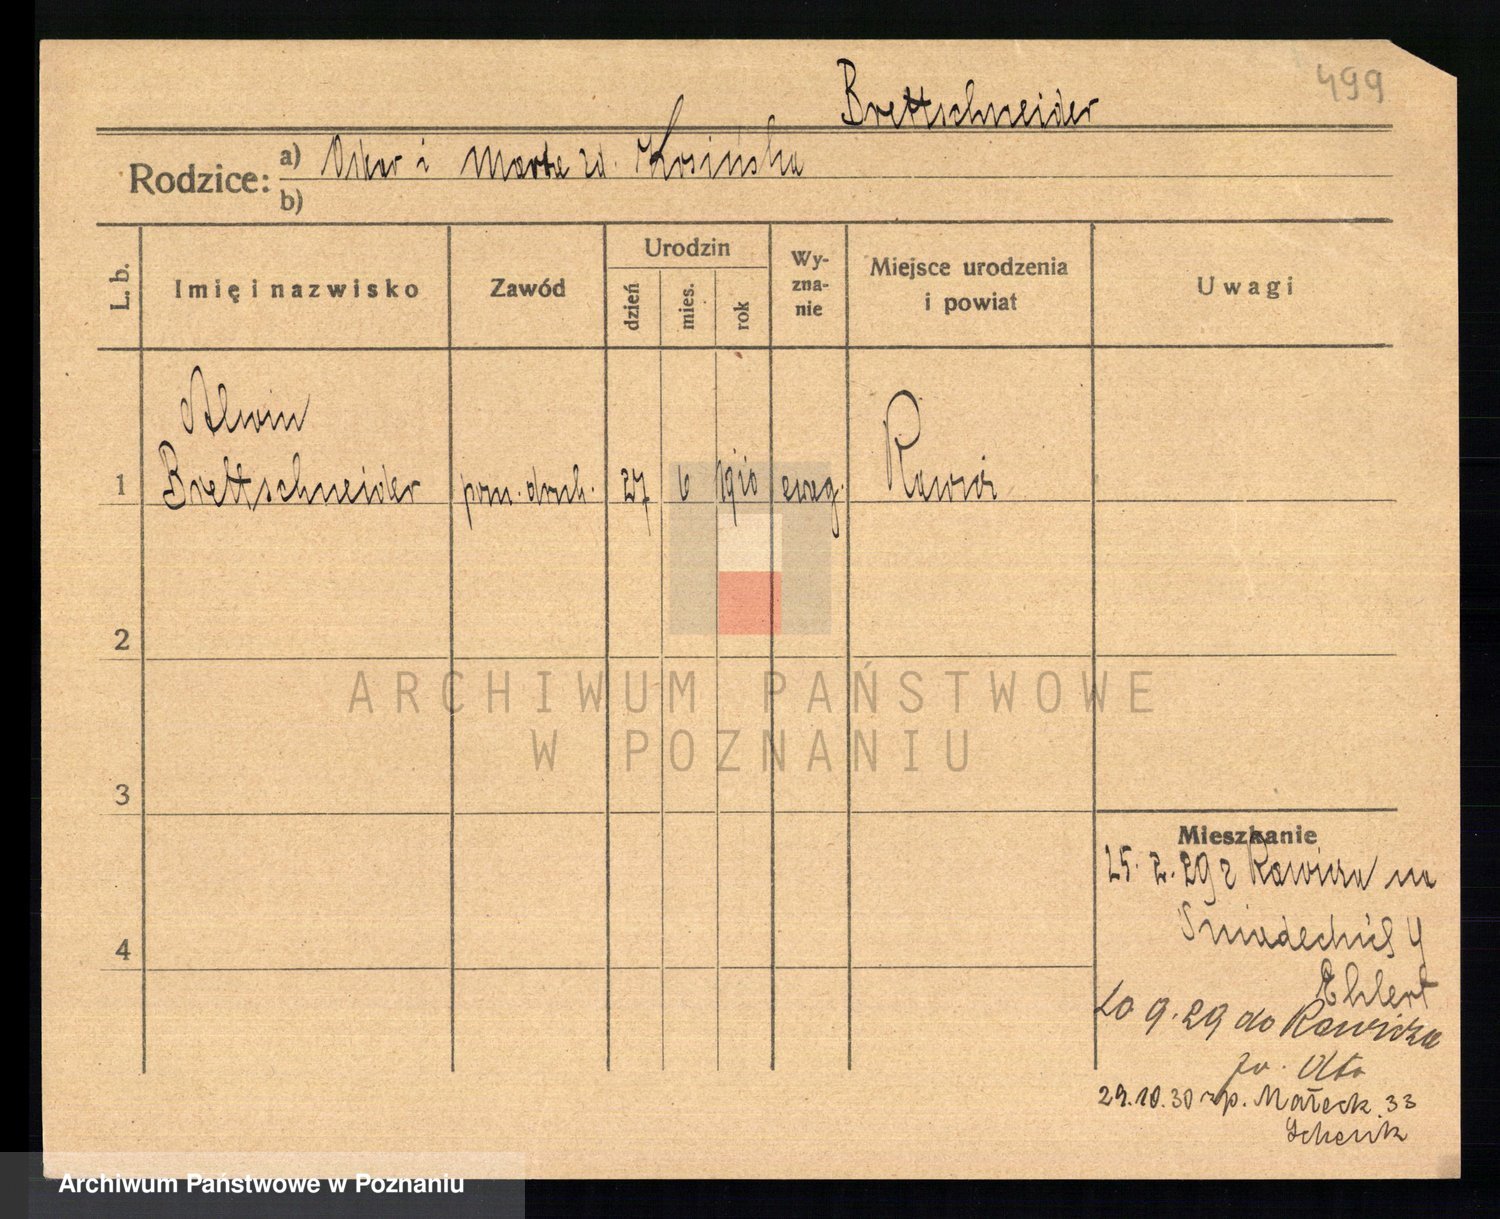 499
Brettschneider
Rodzice: a) Oskar i Marta zd. Kosińska
b)
L. b.
Imię i nazwisko
Zawód
Urodzin
dzień
mies.
rok
Wy-
zna-
nie
Miejsce urodzenia
i powiat
Uwagi
Alwin
1 Brettschneider pom. druk. 27 6 1910 ewag. Rawicz
2
3
4
ARCHIWUM PAŃSTWOWE
W POZNANIU
Mieszkanie
25. 2. 29 z Rawicza na
Śniadeckich 4
Ehlert
20 9. 29 do Rawicza
29.10.30 zp. Małeck. 33
Archiwum Państwowe w Poznaniu